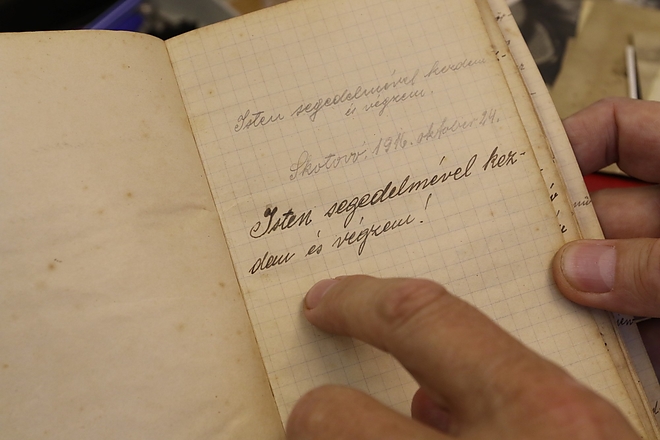 Isten segedelmével kezdem
és végzem.
Skotovó. 1916. oktober 24.
Isten segedelmével kez-
dem és végzem!